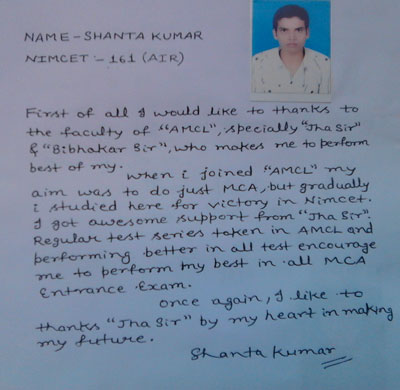 NAME - SHANTA KUMAR
NIMCET :- 161 (AIR)
First of all I would like to thanks to
the faculty of "AMCL", specially "Jha Sir"
& "Bibhakar Sir", who makes me to perform
best of my.
When i joined "AMCL" my
aim was to do just MCA, but gradually
i studied here for victory in Nimcet.
I got awesome support from "Jha Sir".
Regular test series taken in AMCL and
performing better in all test encourage
me to perform my best in all MCA
Entrance Exam.
Once again, I like to
thanks "Jha Sir" by my heart in making
my future.
Shanta Kumar